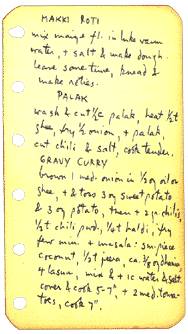 MAKKI ROTI
mix maize fl. in luke warm
water, + salt & make dough.
leave some time, knead &
make roties.
PALAK
wash & cut ½ c palak, heat ½t
ghee, fry ½ onion, + palak,
cut chili & salt, cook tender.
GRAVY CURRY
brown 1 med. onion in ½ oz oil or
ghee, + & toss 3 oz sweet potato
& 3 oz potato, then + 2 gr. chilis,
½t chili pwd, ½t haldi, fry
few min. + masala: sm piece
coconut, ½t jeera,
4 lasun, mix & + 1c water & salt.
cover & cook 5-7", + 2 med. toma-
toes, cook 7".